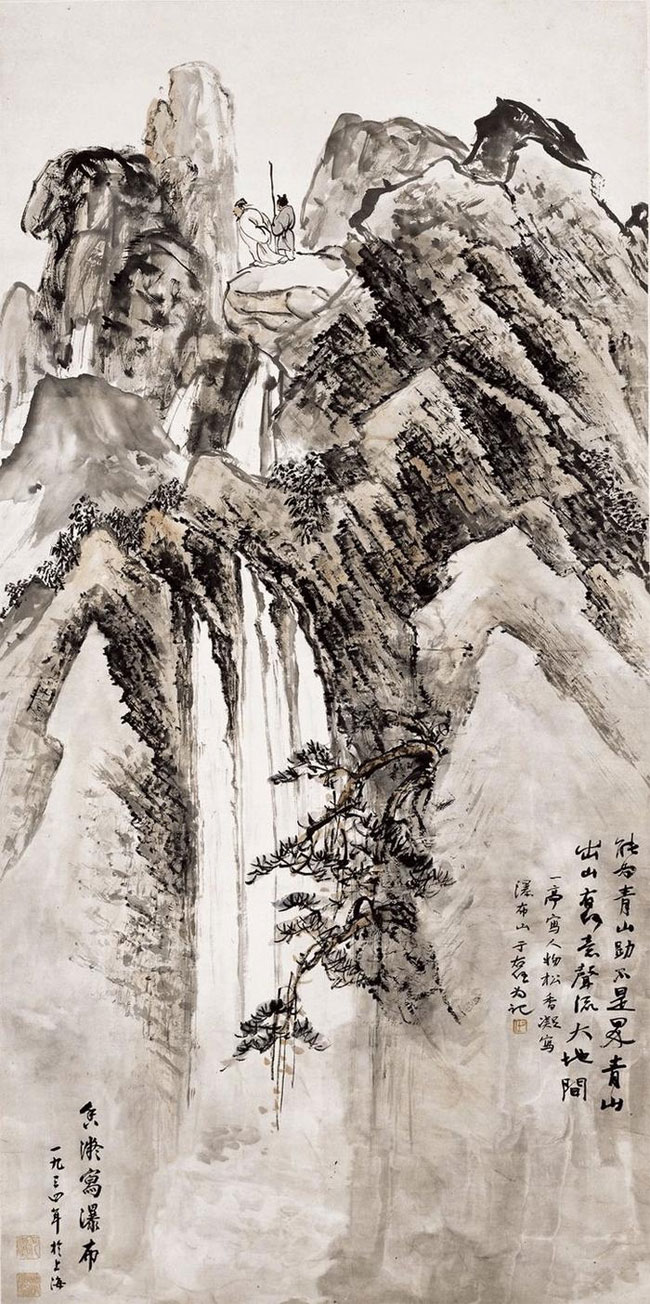 能为青山助不是界青山
出山有何意聲流大地間
一亭寫人物松香凝寫
瀑布山于右任为记
香凝寫瀑布
一九三四年於上海